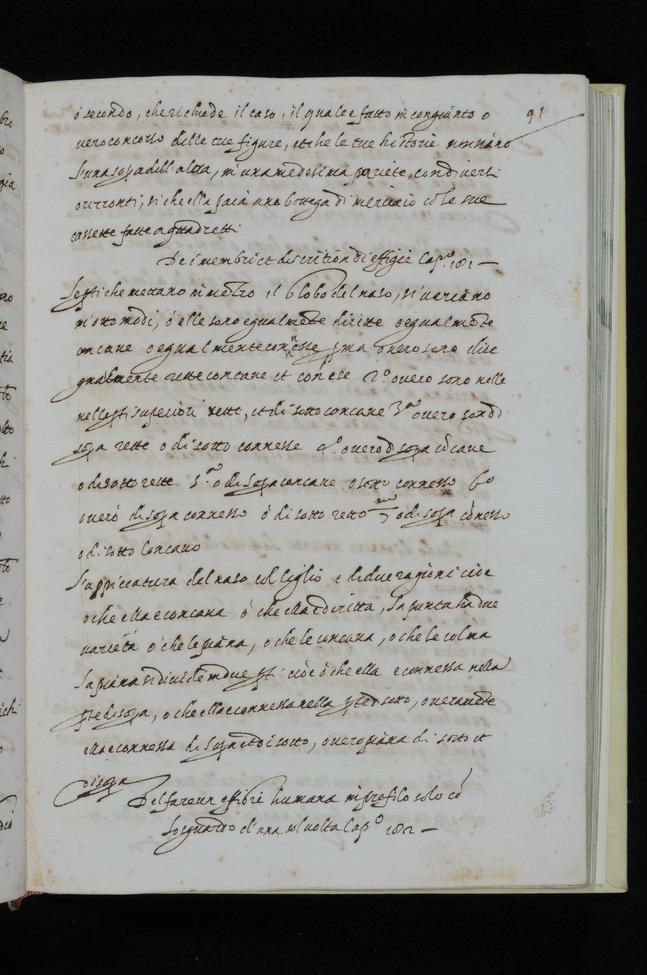 91
ò secondo, che richiede il caso, il quale è fatto in congiunto o
vero concorso delle tue figure, et che le tue historie non siano
l'una sopra dell'altra, in una medesima pariete, con diversi
orizzonti, si che ella paia una bottega di merciaio cò le sue
cassette fatte a quadretti.
De i membri et discrition di effigie Cap.o 181 —
Le pti che mettano in mezzo il globo del naso, si variano
in otto modi, ò elle sono egualmente diritte o egualmente
concave o egualmente convesse pma overo sono dise
gualmente rette concave et convese 2.o overo sono nelle
nelle pti superiori rette, et di sotto concave 3.o overo son di
sopra rette o di sotto convesse 4.o overo di sopra cōcave
o di sotto rette 5.o o di sopra concave o sotto convesso 6.o
overo di sopra convesso ò di sotto retto 7 o di sopra cōvesso
o di sotto concavo
L'appiccatura del naso col ciglio è di due ragioni cioe
o che ella e concava ò che ella è diritta, la punta ha due
varietà ò che le piana, o che le concava, o che le colma
La piana si divide in due pti cioè ò che ella e convessa nella
pte di sopra, o che ella e convessa nella pte di sotto, overamente
ella e convessa di sopra et di sotto, overo piana di sotto et
di sopra
Del fare un effigie humana in profilo solo cō
lo sguardo d'una sol volta Cap.o 182 —